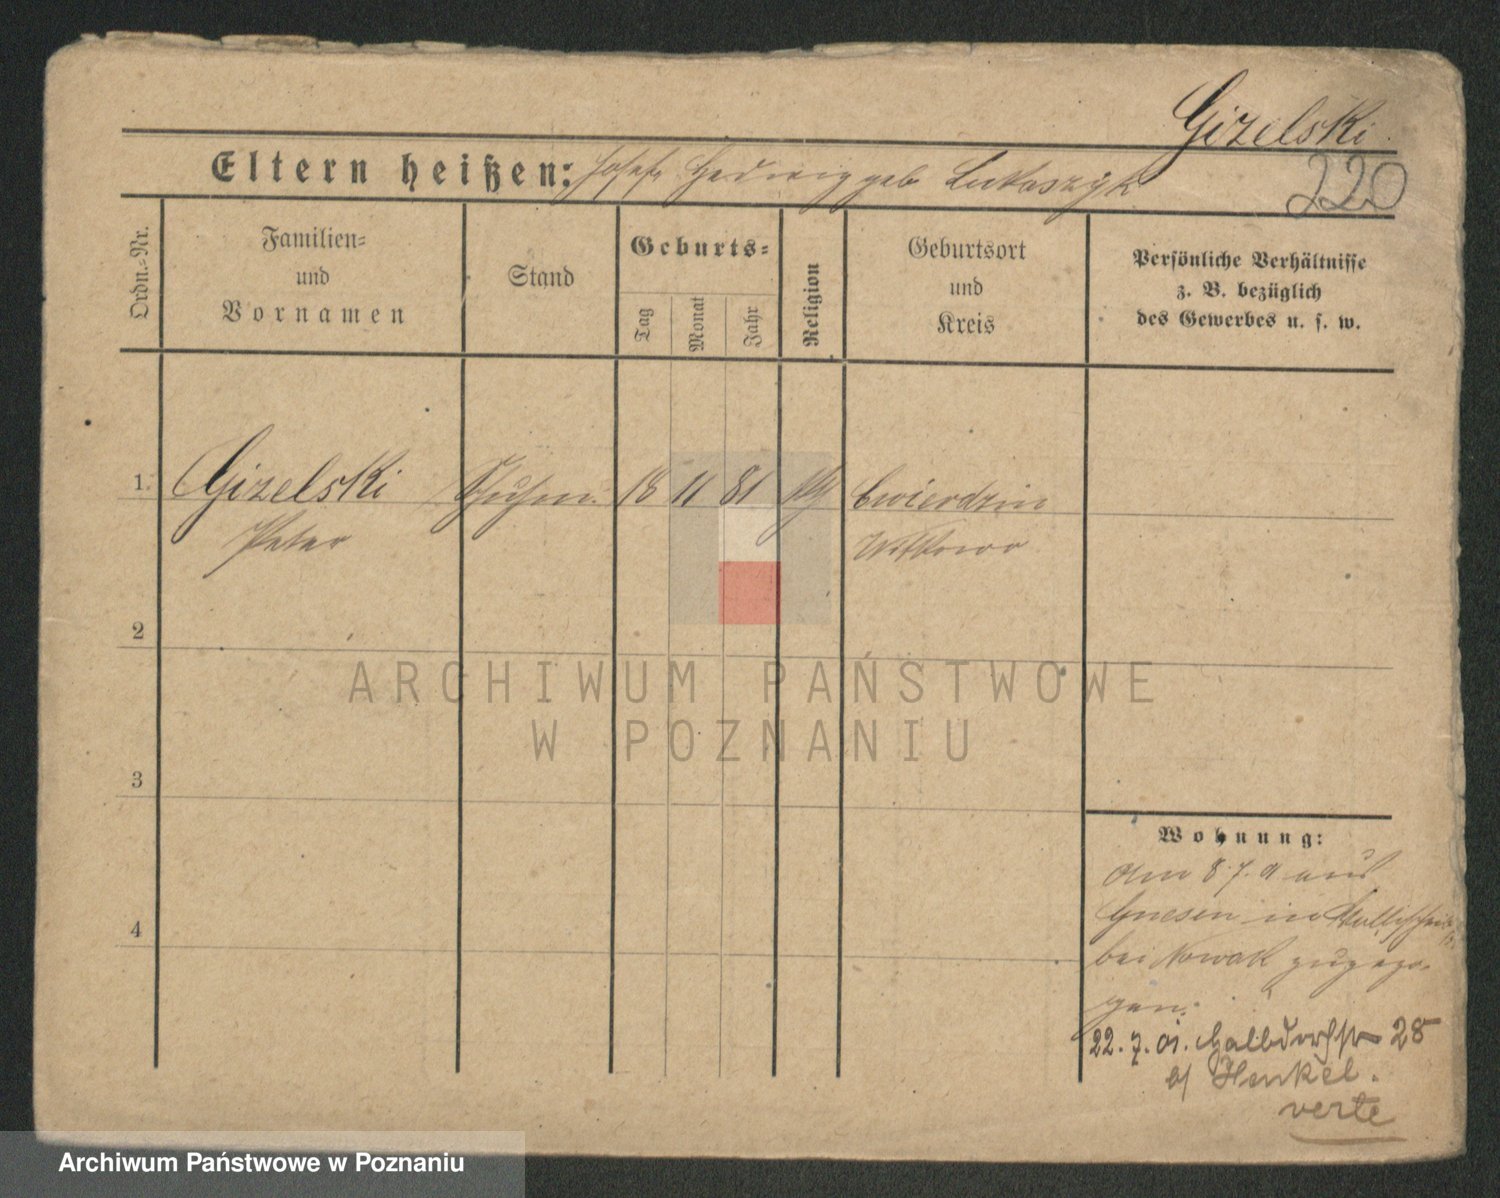 Gizelski
220
Eltern heißen: Josef Hedwig geb Lukaszyk
Ordn.-Nr.
Familien-
und
Vornamen
Stand
Geburts-
Tag
Monat
Jahr
Religion
Geburtsort
und
Kreis
Persönliche Verhältnisse
z. B. bezüglich
des Gewerbes u. s. w.
1. Gizelski 18 11 81 Cwierdzin
Peter Witkowo
2
3
4
ARCHIWUM PAŃSTWOWE
W POZNANIU
Wohnung:
Am 8.7. aus
Gnesen in
bei Nowak zugezo-
gen.
22.7.01. Halbdorfstr 28
b/ Henkel.
verte
Archiwum Państwowe w Poznaniu